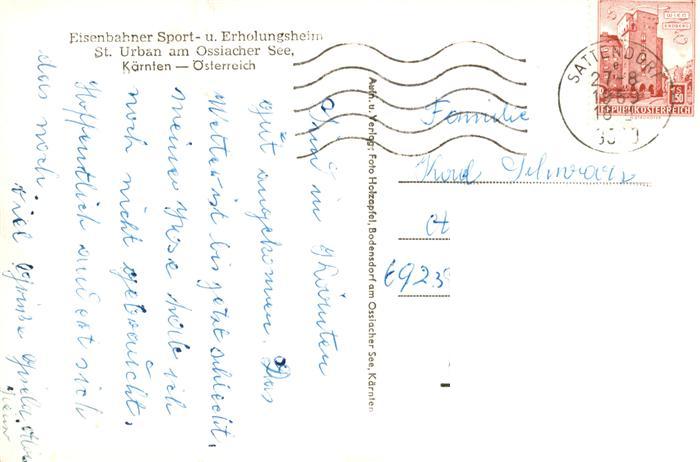 Eisenbahner Sport- u. Erholungsheim
St. Urban am Ossiacher See,
Kärnten — Österreich
Sind in Kärnten
gut angekommen. Das
Wetter ist bis jetzt schlecht,
meine Hose habe ich
noch nicht gebraucht.
Hoffentlich ändert sich
das noch.
Viel Grüße
Aufn. u. Verlag: Foto Holzapfel, Bodensdorf am Ossiacher See, Kärnten
Familie
Karl Schwarz
6923
SATTENDORF
27-8
WIEN
ERDBERG
S 1.50
REPUBLIK ÖSTERREICH